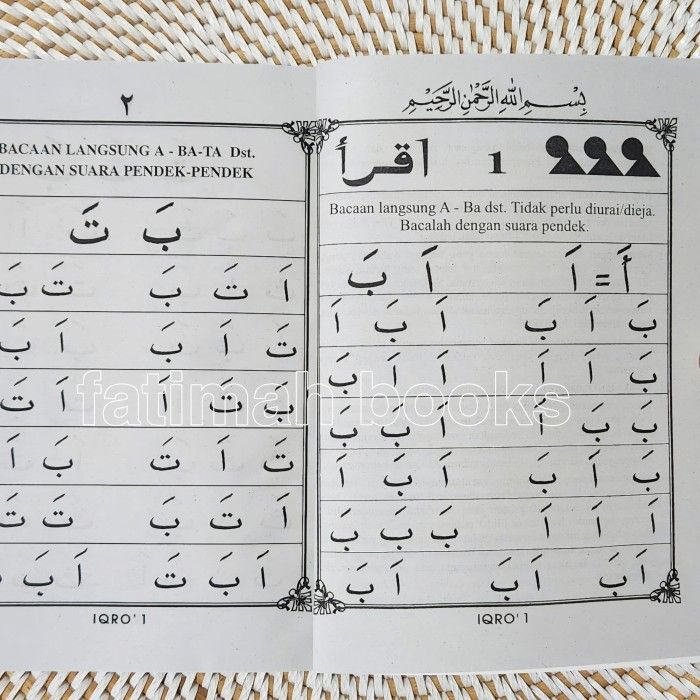 بِسْمِ اللهِ الرَّحْمٰنِ الرَّحِيْمِ
1 اقرأ
Bacaan langsung A - Ba dst. Tidak perlu diurai/dieja.
Bacalah dengan suara pendek.
أَ = اَ اَ بَ
بَ اَ بَ اَ بَ اَ
بَ اَ اَ اَ اَ بَ
بَ بَ اَ اَ بَ بَ
بَ اَ بَ اَ بَ اَ
اَ اَ اَ بَ بَ بَ
اَ بَ اَ بَ اَ بَ
IQRO' 1
٢
BACAAN LANGSUNG A - BA-TA Dst.
DENGAN SUARA PENDEK-PENDEK
بَ تَ
اَ تَ بَ تَ بَ
تَ اَ بَ اَ بَ
بَ تَ اَ اَ تَ
تَ اَ تَ بَ اَ
اَ تَ بَ تَ تَ
اَ بَ تَ اَ بَ
IQRO' 1
fatimah books